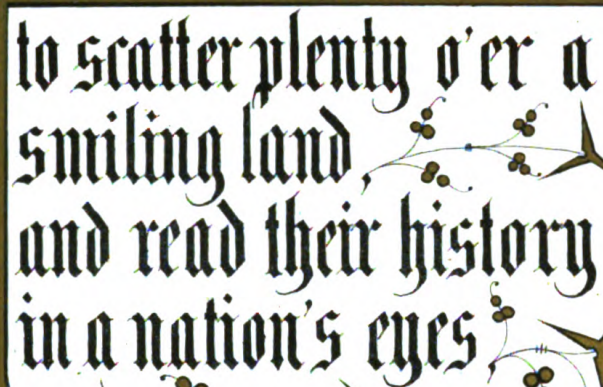 to scatter plenty o'er a
smiling land,
and read their history
in a nation's eyes